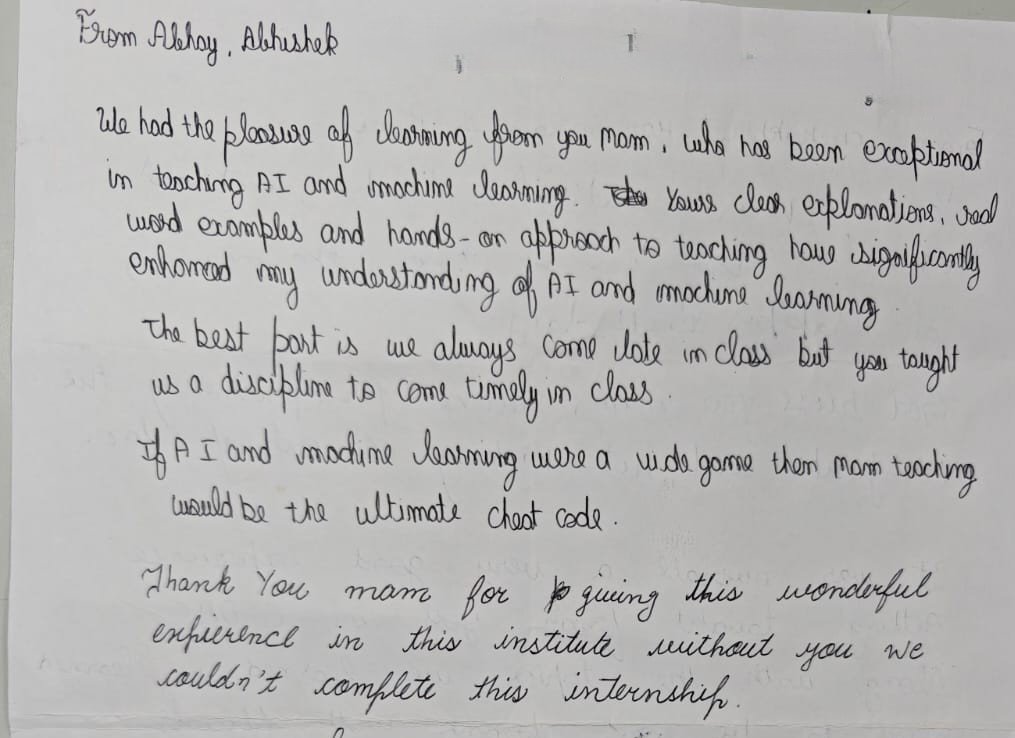 From Abhay, Abhishek
We had the pleasure of learning from you mam, who has been exceptional
in teaching AI and machine learning. Yours clear explanations, real
word examples and hands-on approach to teaching have significantly
enhanced my understanding of AI and machine learning
The best part is we always come late in class but you taught
us a discipline to come timely in class.
If AI and machine learning were a vide game then mam teaching
would be the ultimate cheat code.
Thank You mam for giving this wonderful
expierence in this institute without you we
couldn't complete this internship.